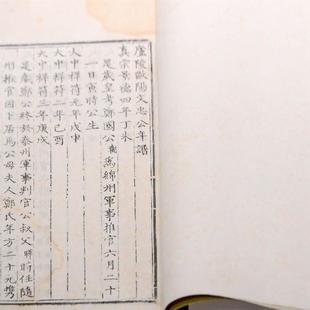 廬陵歐陽文忠公年譜
真宗景德四年丁未
是歲皇考鄭國公爲綿州軍事推官六月二十
一日寅時公生
大中祥符元年戊申
大中祥符二年己酉
大中祥符三年庚戌
是歲鄭公終於泰州軍事判官公叔父曄時任隨
州推官因卜居焉公母夫人鄭氏年方二十九携